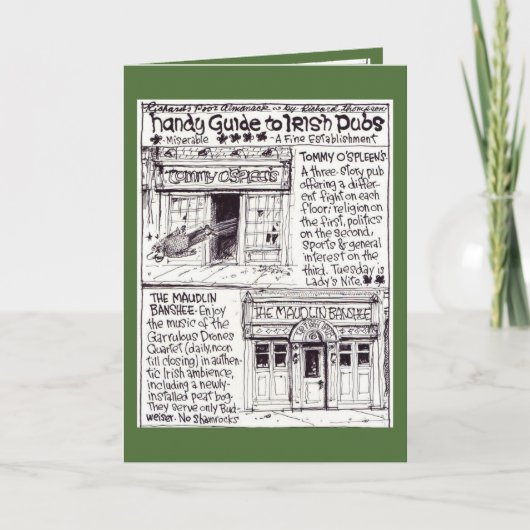 Richard's Poor Almanack by Richard Thompson
Handy Guide to Irish Pubs
Miserable - A Fine Establishment
TOMMY O'SPLEEN'S
TOMMY O'SPLEEN'S.
A three-story pub
offering a differ-
ent fight on each
floor; religion on
the first, politics
on the second,
sports & general
interest on the
third. Tuesday is
Lady's Nite.
THE MAUDLIN
BANSHEE. Enjoy
the music of the
Garrulous Drones
Quartet (daily, noon
till closing) in authen-
tic Irish ambience,
including a newly-
installed peat bog.
They serve only Bud-
weiser. No Shamrocks
THE MAUDLIN BANSHEE